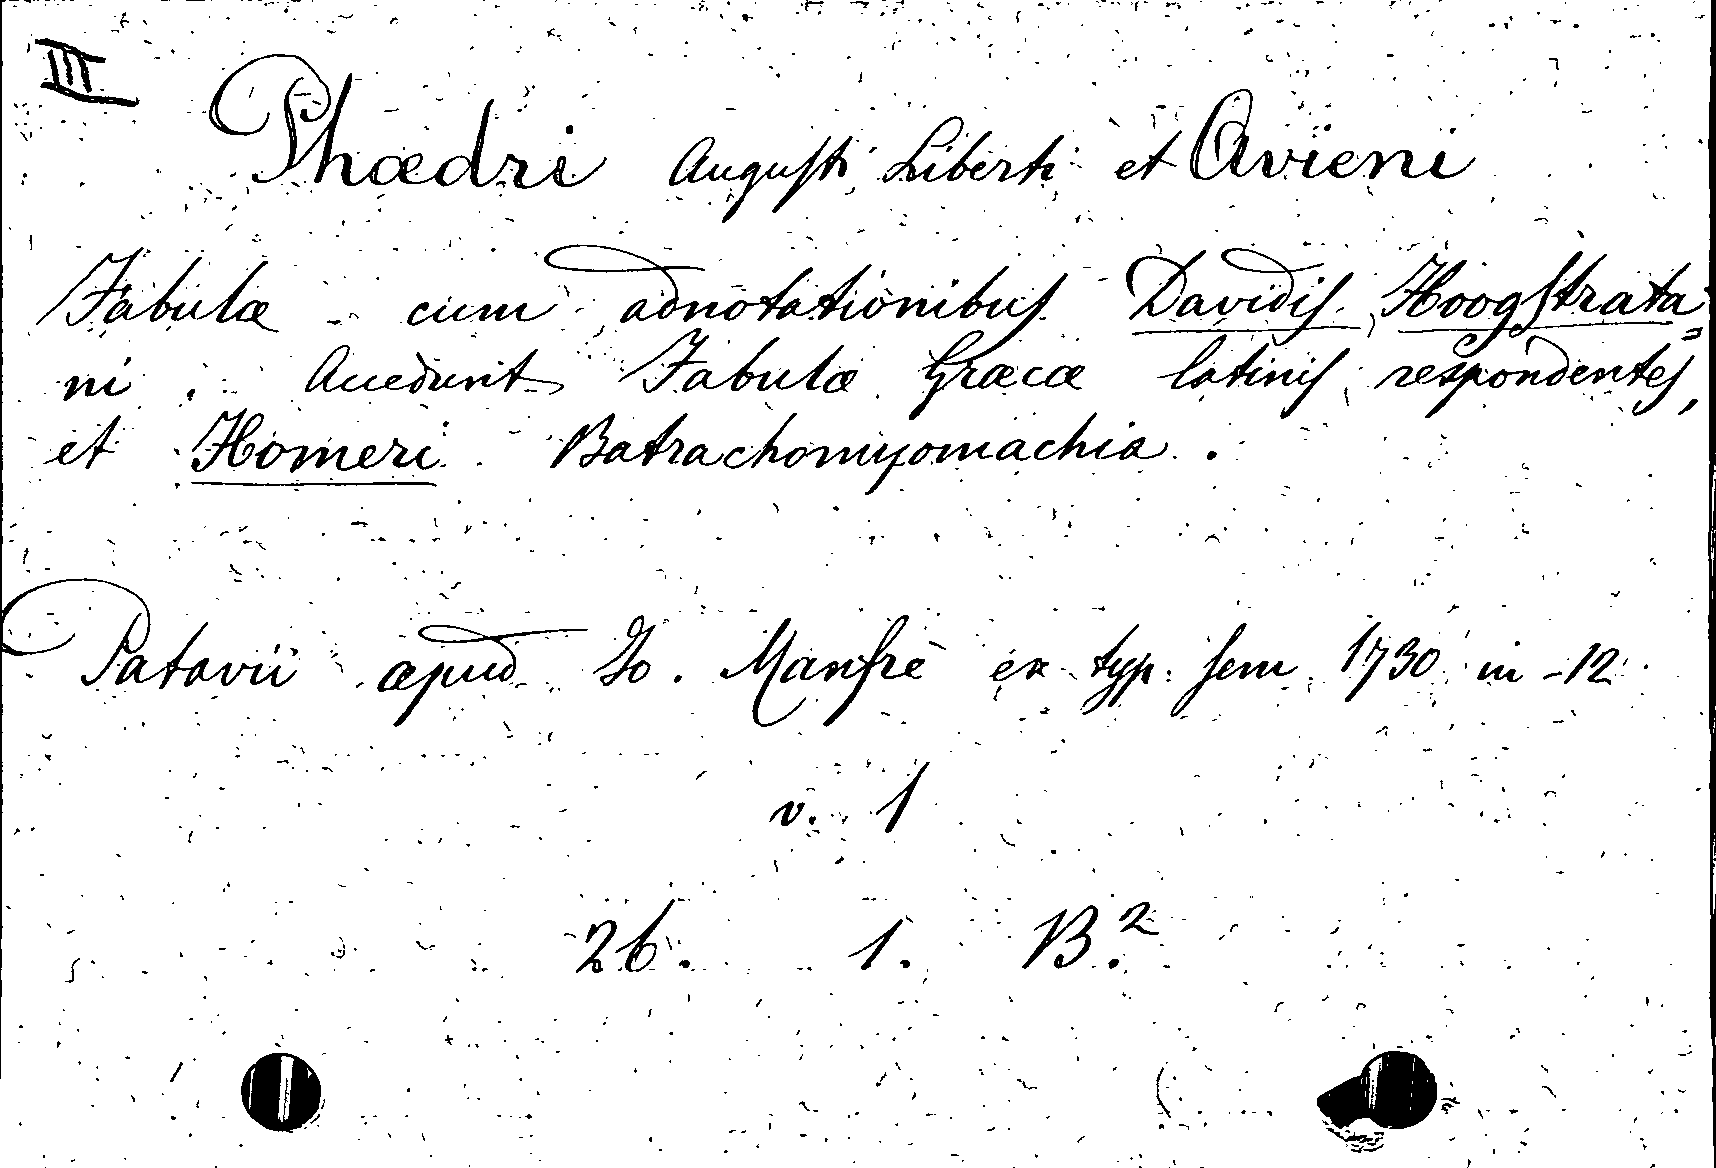 III
Phædri Augusti Liberti et Avieni
Fabulæ cum adnotationibus Davidis Hoogstrata=
ni. Accedunt Fabulæ Græcæ latinis respondentes,
et Homeri Batrachomyomachia.
Patavii apud Jo. Manfrè ex typ. sem 1730 in-12
v. 1
26. 1. B.²